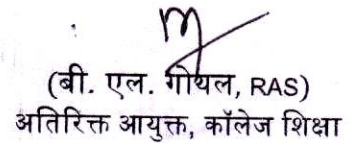 (बी. एल. गोयल, RAS)
अतिरिक्त आयुक्त, कॉलेज शिक्षा